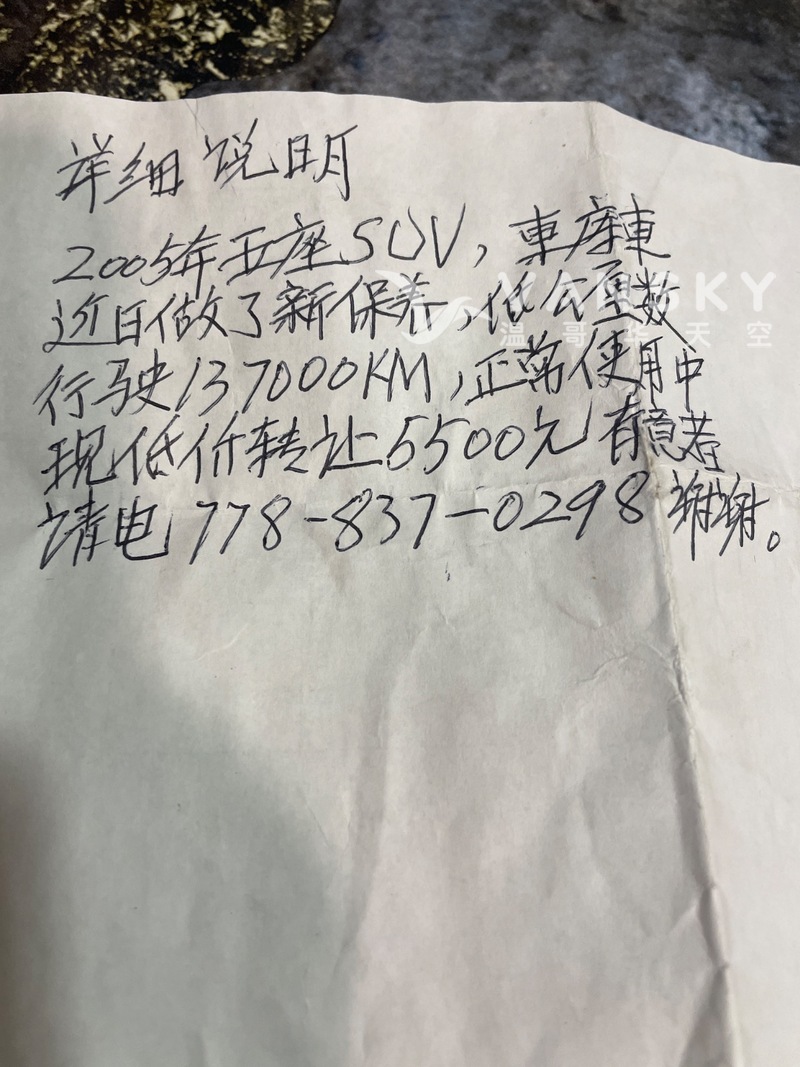 详细说明
2005年五座SUV, 車库車
近日做了新保养,低公里数
VANSKY
温哥华天空
行驶137000KM,正常使用中
现低价转让5500元 有意者
请电 778-837-0298 謝謝。